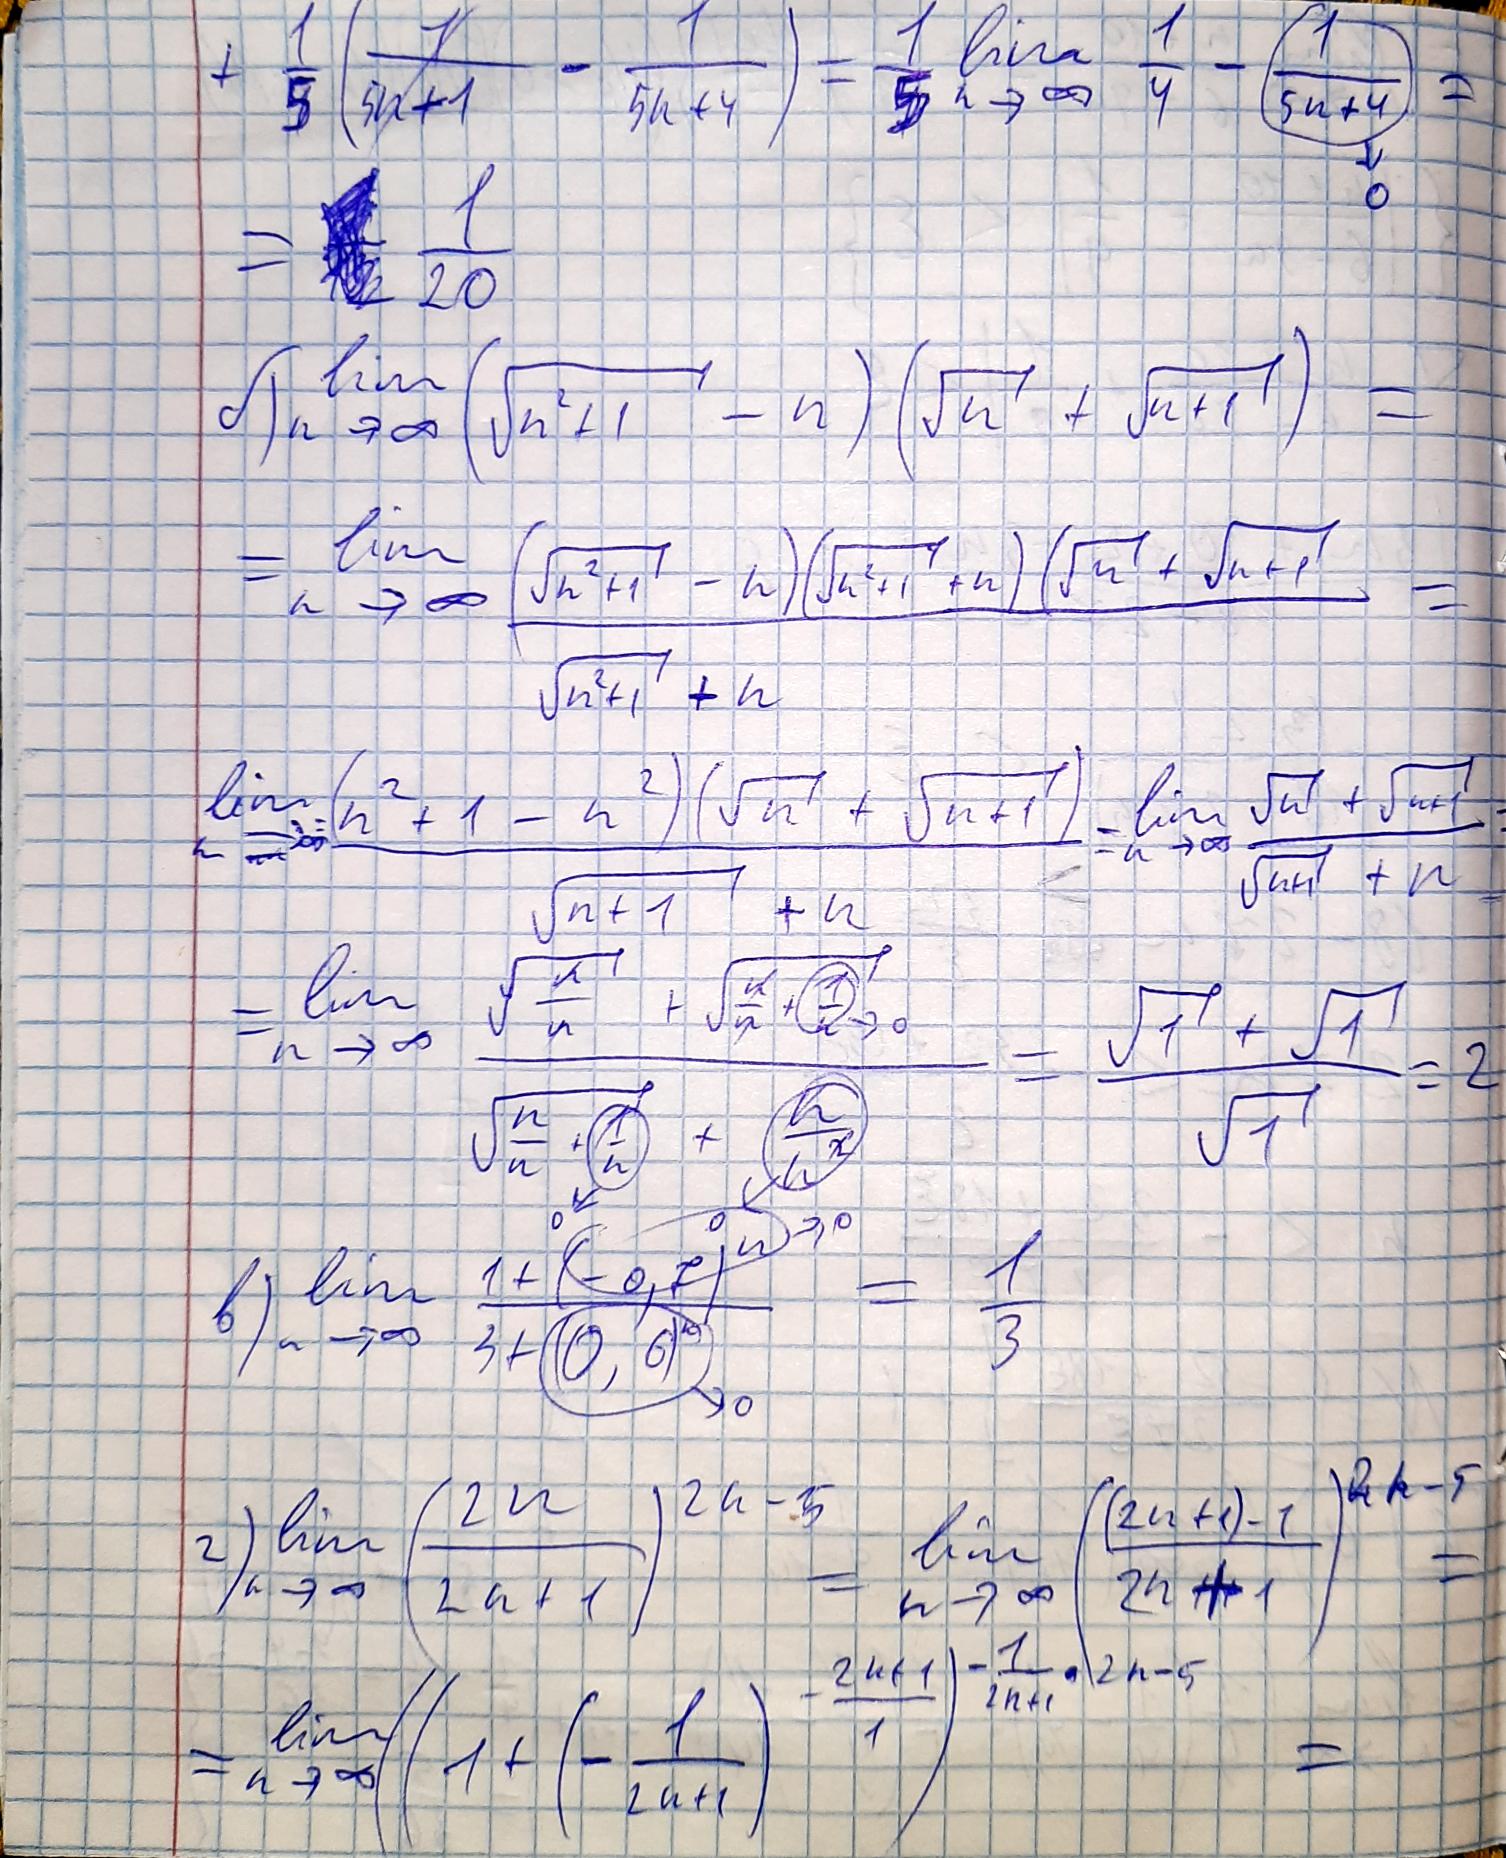 + 1/5 (1/(5n+1) - 1/(5n+4)) = 1/5 lim n→∞ 1/4 - 1/(5n+4) =
↓
0
= 1/20
б) lim n→∞ (√(n²+1) - n)(√n + √(n+1)) =
= lim n→∞ (√(n²+1) - n)(√(n²+1) + n)(√n + √(n+1) / √(n²+1) + n =
lim n→∞ (n² + 1 - n²)(√n + √(n+1)) / √(n+1) + n = lim n→∞ (√n + √(n+1)) / (√(n+1) + n) =
= lim n→∞ (√(n/n) + √(n/n + 1/n →0)) / (√(n/n + 1/n) + n/n²) = (√1 + √1) / √1 = 2
0 0 →0
в) lim n→∞ (1 + (-0,7)ⁿ) / (3 + (0,6)ⁿ) = 1/3
→0
г) lim n→∞ (2n/(2n+1))^(2n-5) = lim n→∞ (((2n+1)-1)/(2n+1))^(2n-5) =
= lim n→∞ ((1 + (-1/(2n+1))^(-(2n+1)/1))^(-1/(2n+1) · 2n-5) =